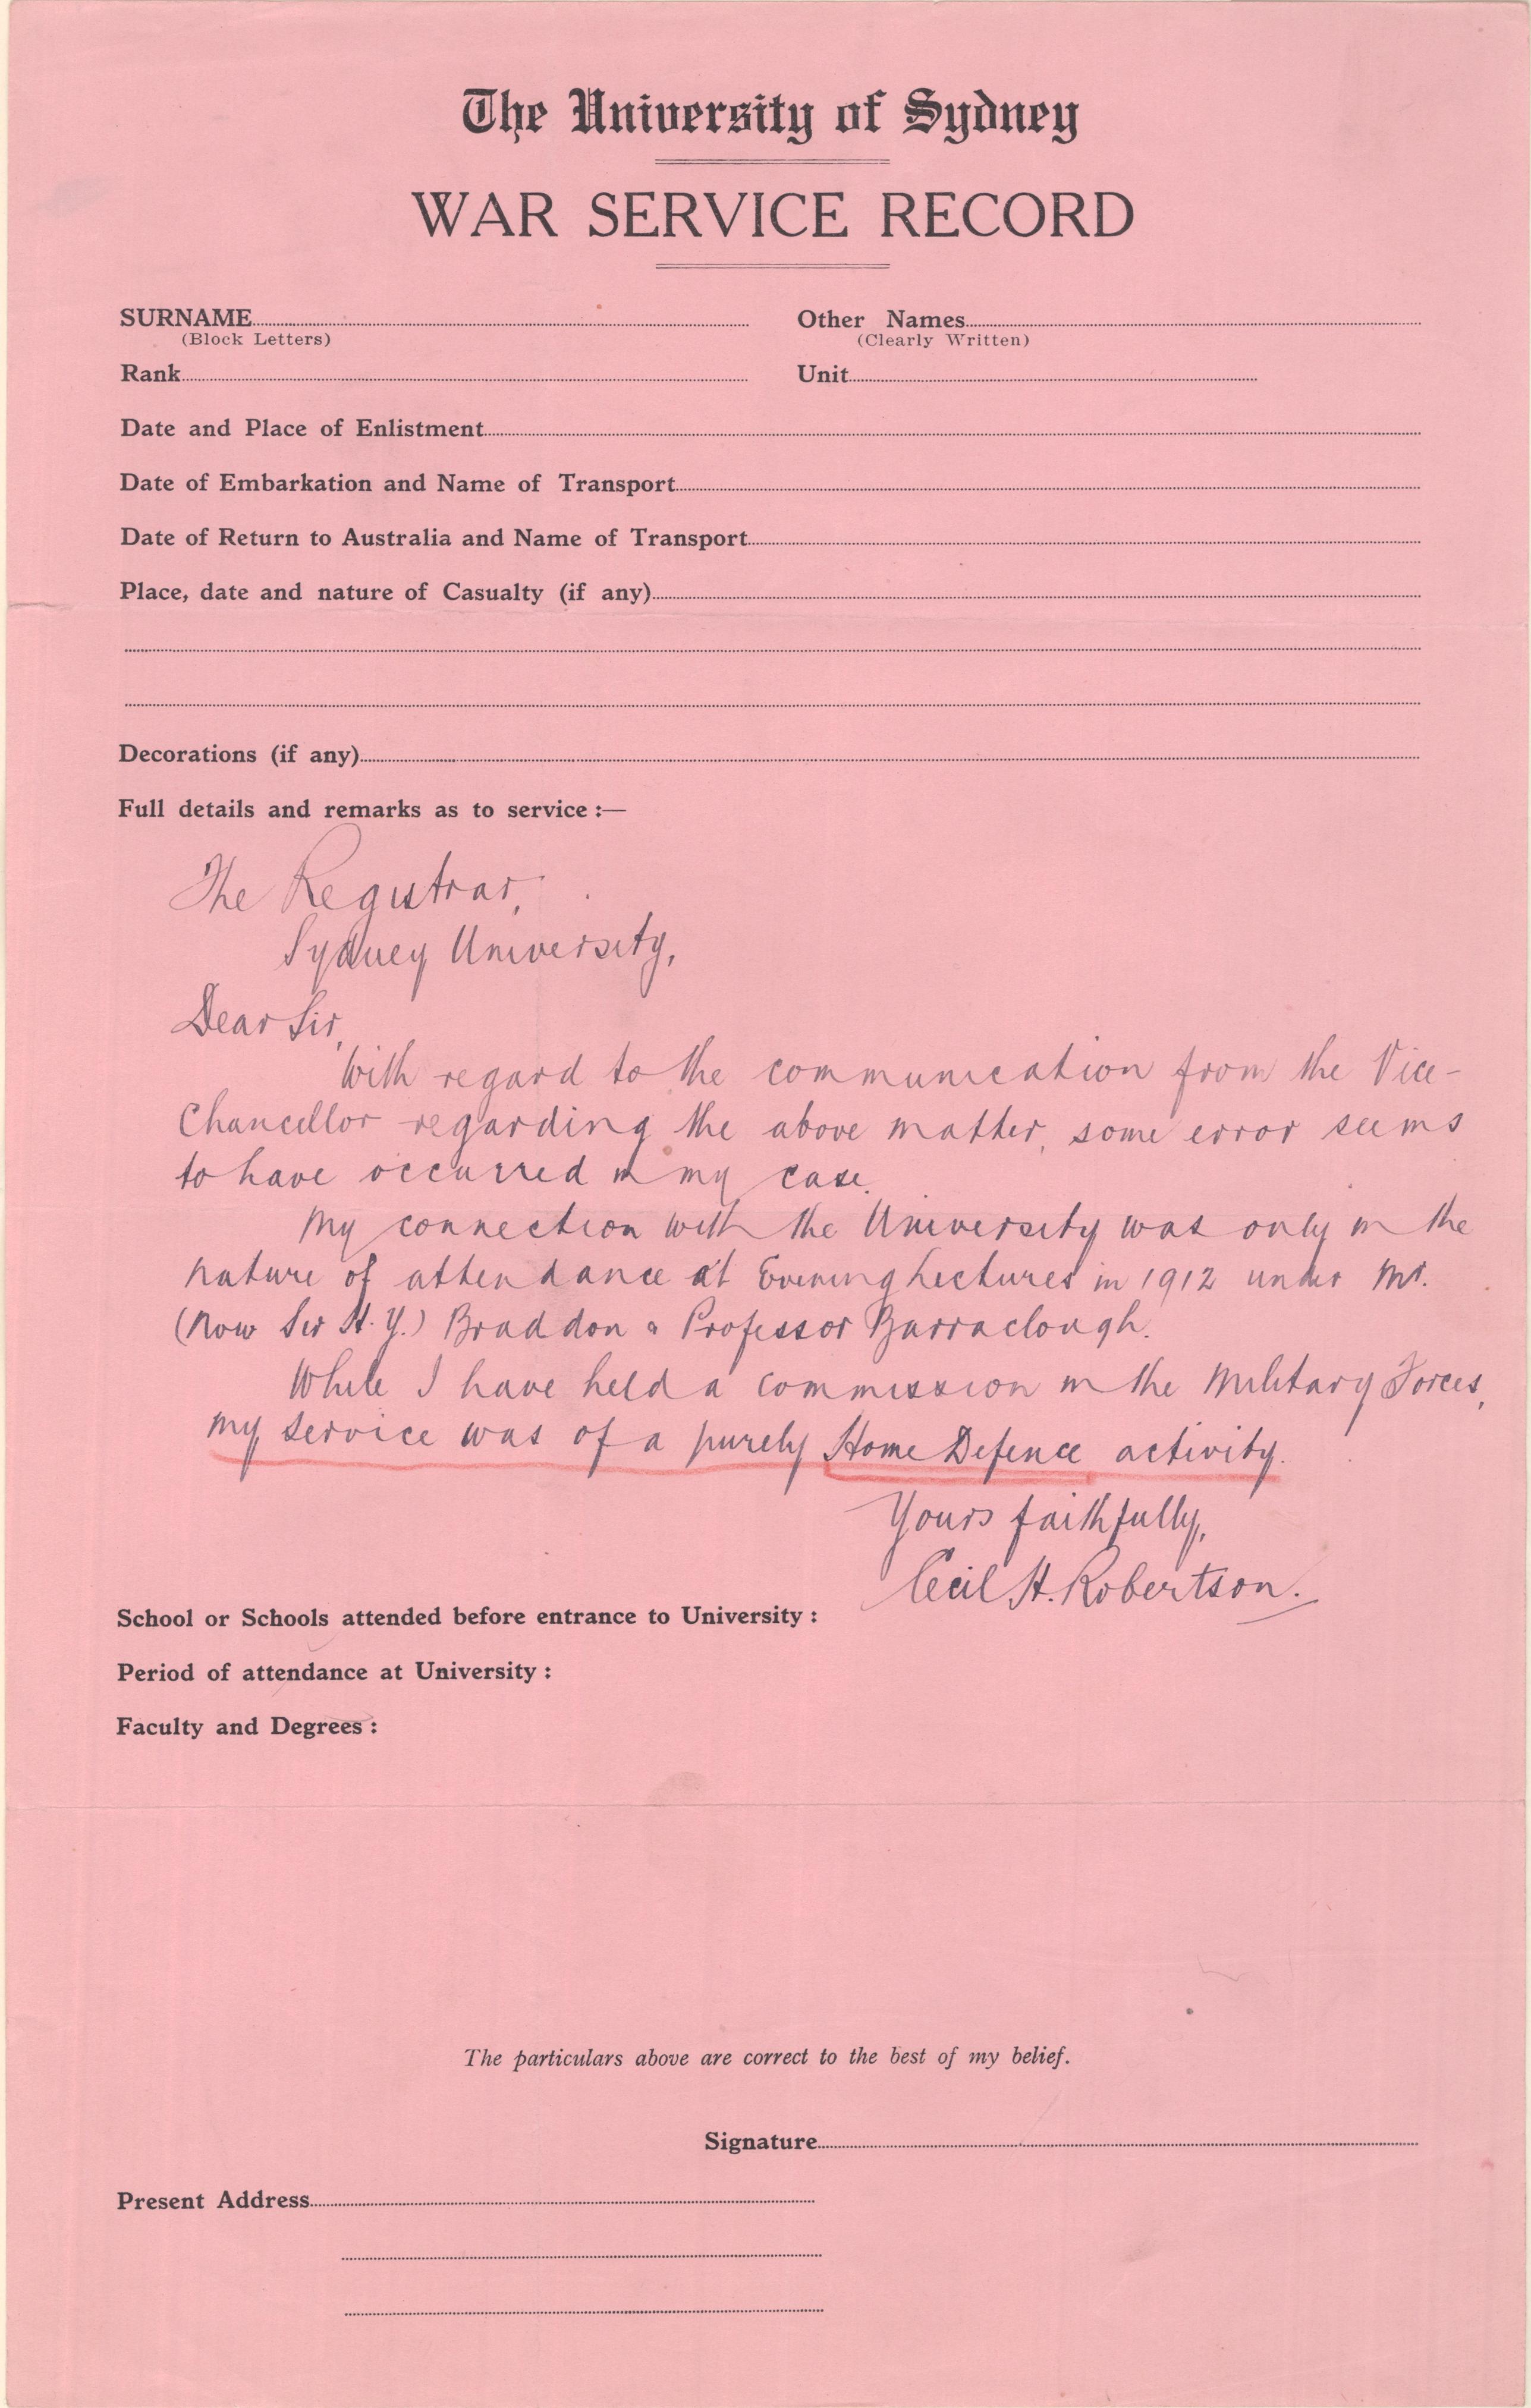 The University of Sydney
WAR SERVICE RECORD
SURNAME Other Names
(Block Letters) (Clearly Written)
Rank Unit
Date and Place of Enlistment
Date of Embarkation and Name of Transport
Date of Return to Australia and Name of Transport
Place, date and nature of Casualty (if any)
Decorations (if any)
Full details and remarks as to service :—
The Registrar,
Sydney University,
Dear Sir,
With regard to the communication from the Vice-
Chancellor regarding the above matter, some error seems
to have occurred in my case.
My connection with the University was only in the
nature of attendance at Evening Lectures in 1912 under Mr.
(now Sir H. Y.) Braddon & Professor Barraclough.
While I have held a commission in the Military Forces,
my service was of a purely Home Defence activity.
Yours faithfully,
Cecil H. Robertson.
School or Schools attended before entrance to University :
Period of attendance at University :
Faculty and Degrees :
The particulars above are correct to the best of my belief.
Signature
Present Address